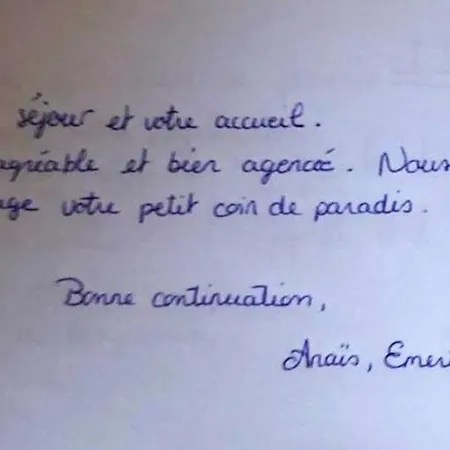 séjour et votre accueil.
agréable et bien agencé. Nous
votre petit coin de paradis.
Bonne continuation,
Anaïs, Emeri